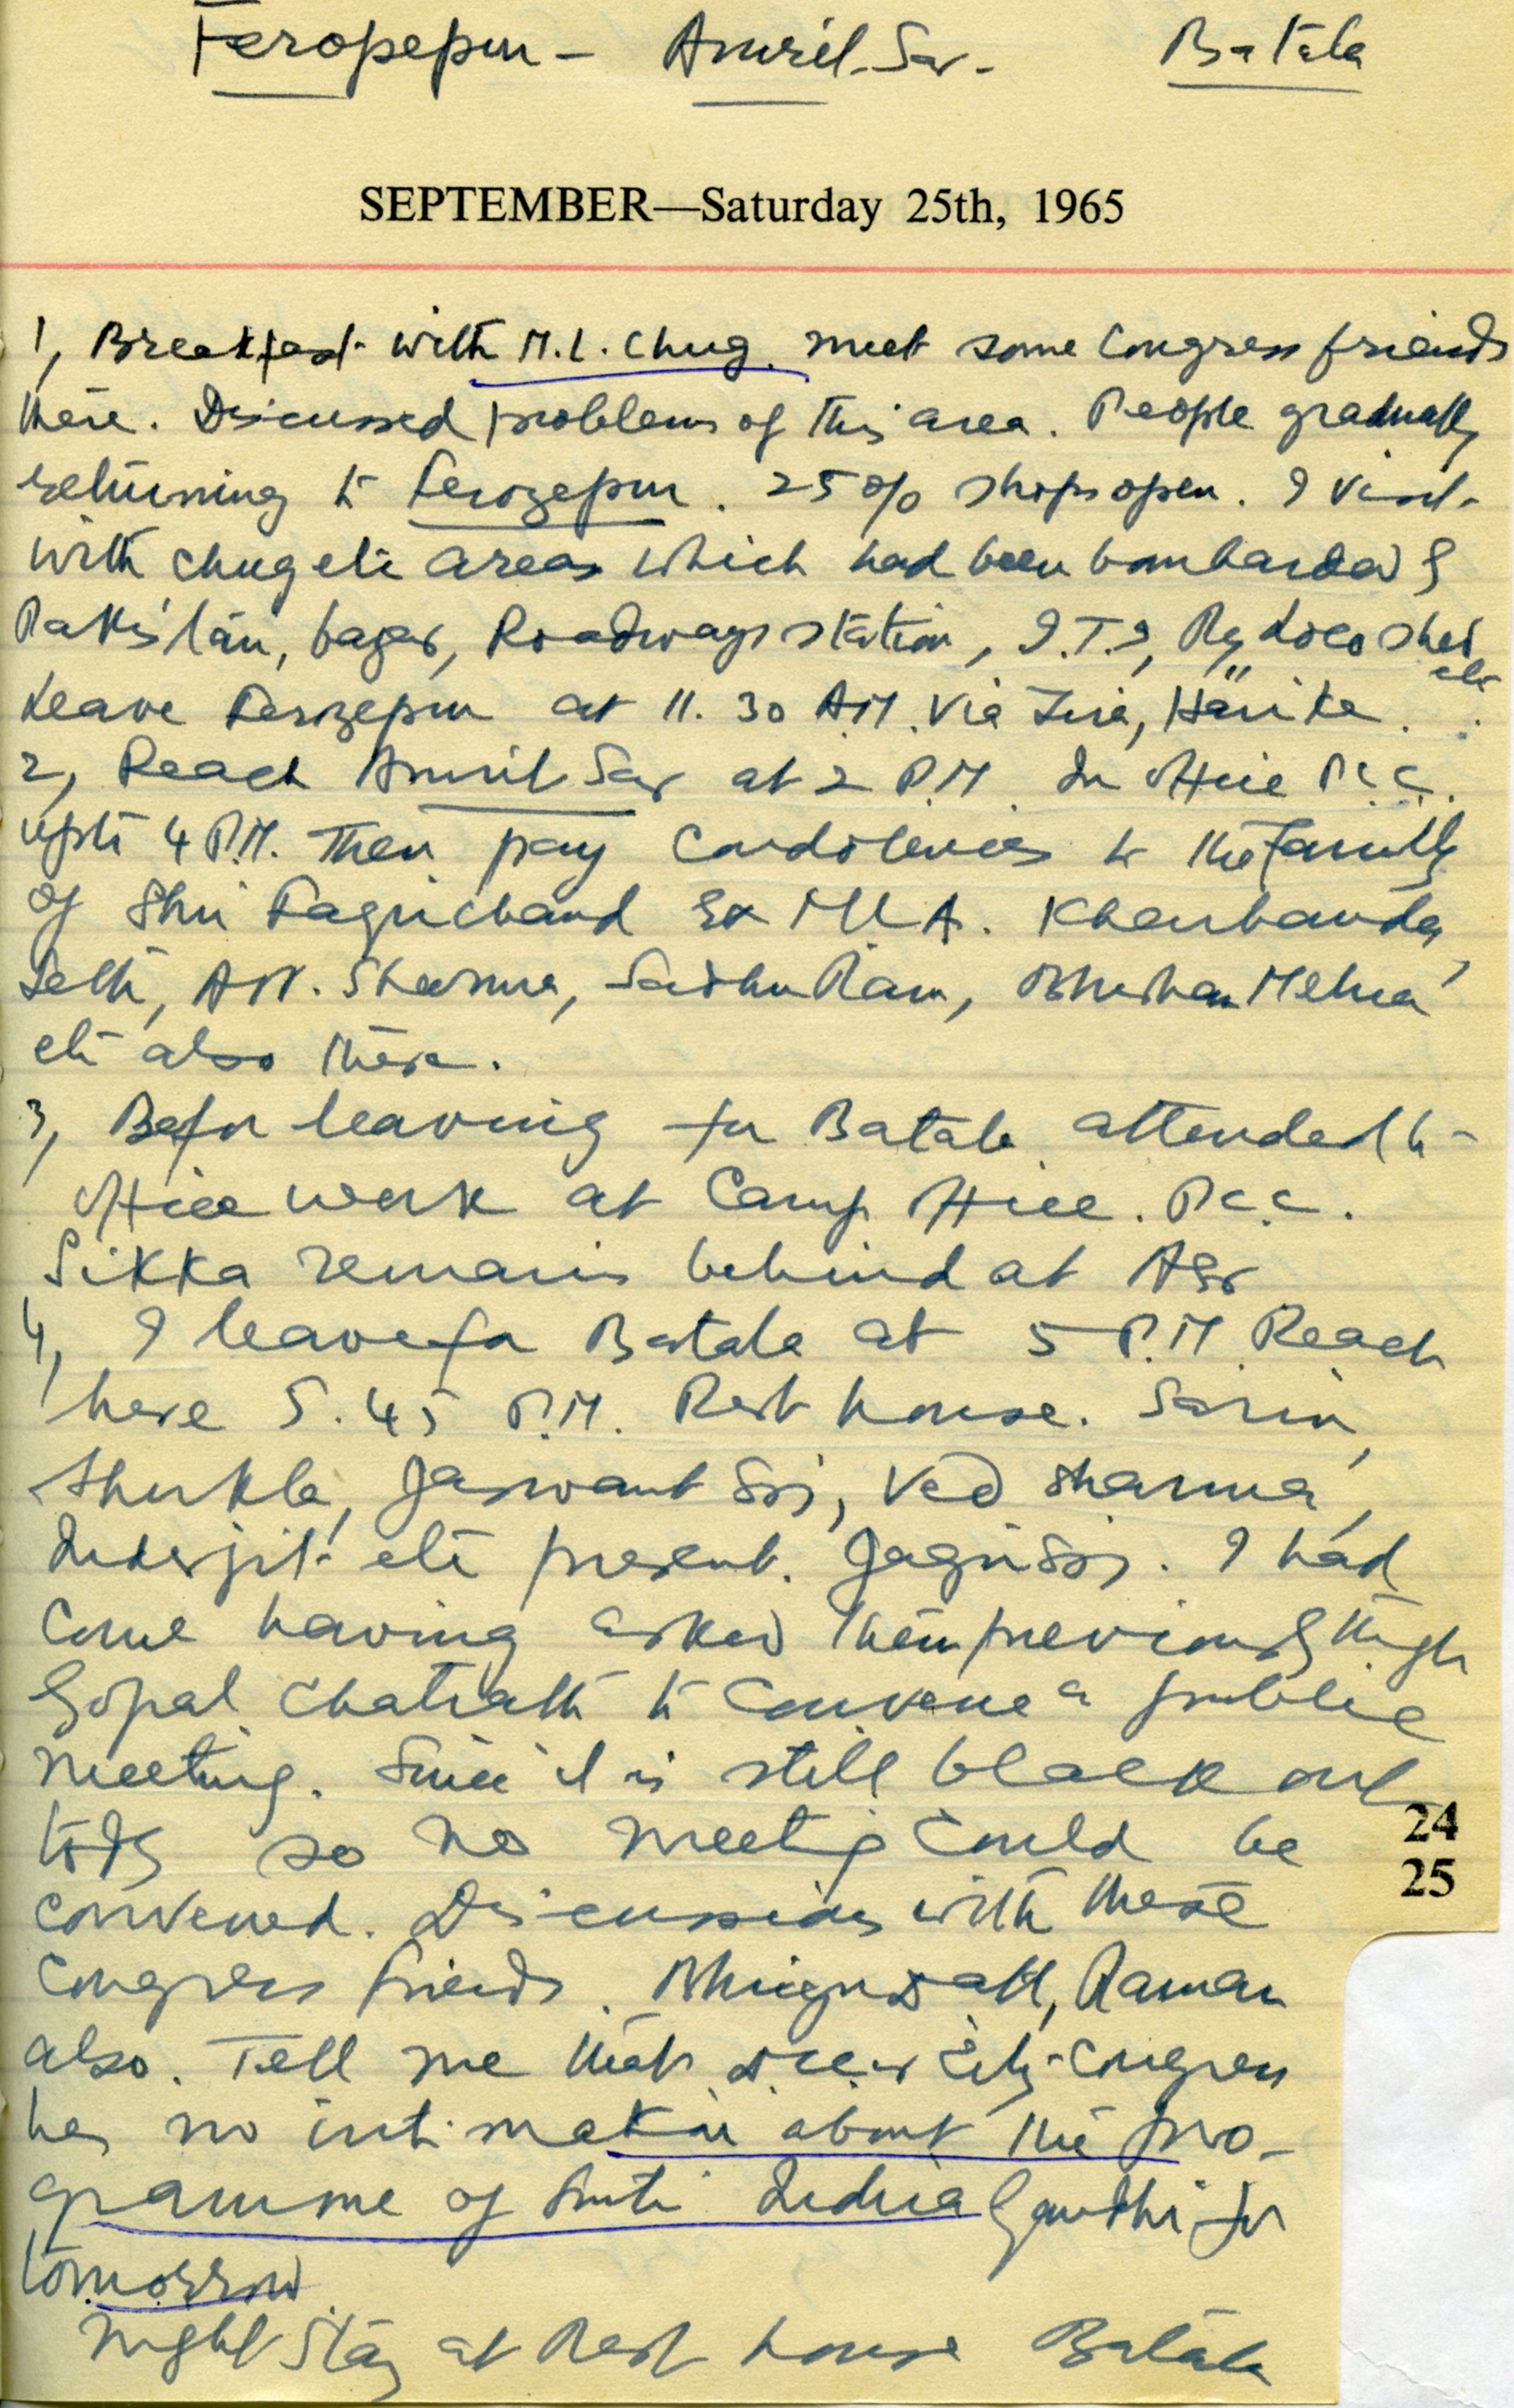 Ferozepur - Amrit-Sar - Batala
SEPTEMBER—Saturday 25th, 1965
1, Breakfast with M.L. Chug. meet some Congress friends
there. Discussed problems of this area. People gradually
returning to Ferozepur. 25% shops open. I visit
with Chug etc areas which had been bombarded by
Pakistan, bazar, Roadways station, I.T.I, Rly Loco shed
etc
Leave Ferozepur at 11.30 A.M. Via Zira, Harike.
2, Reach Amrit Sar at 2 P.M. In office P.C.C.
upto 4 P.M. Then pay condolences to the family
of Shri Faqirchand Ex MLA. Kharbanda,
Sethi, A.N. Sharma, Sadhu Ram, Bhushan Mehra
etc also there.
3, Before leaving for Batala attended to
office work at Camp office. P.C.C.
Sikka remains behind at Asr
4, I leave for Batala at 5 P.M. Reach
here 5.45 P.M. Rest house. Sarin,
Shukla, Jaswant Sgj, Ved Sharma,
Inderjit etc present. Jagir Sgj. I had
come having asked them previously through
Gopal Chatrath to convene a public
meeting. Since it is still black out
today so no meeting could be
24
convened. Discussions with these
25
Congress friends. Bhrigu Datt, Raman
also. Tell me that D.C.C. or City Congress
has no intimation about the pro-
gramme of Smti Indira Gandhi for
tomorrow
Night Stay at Rest house Batala